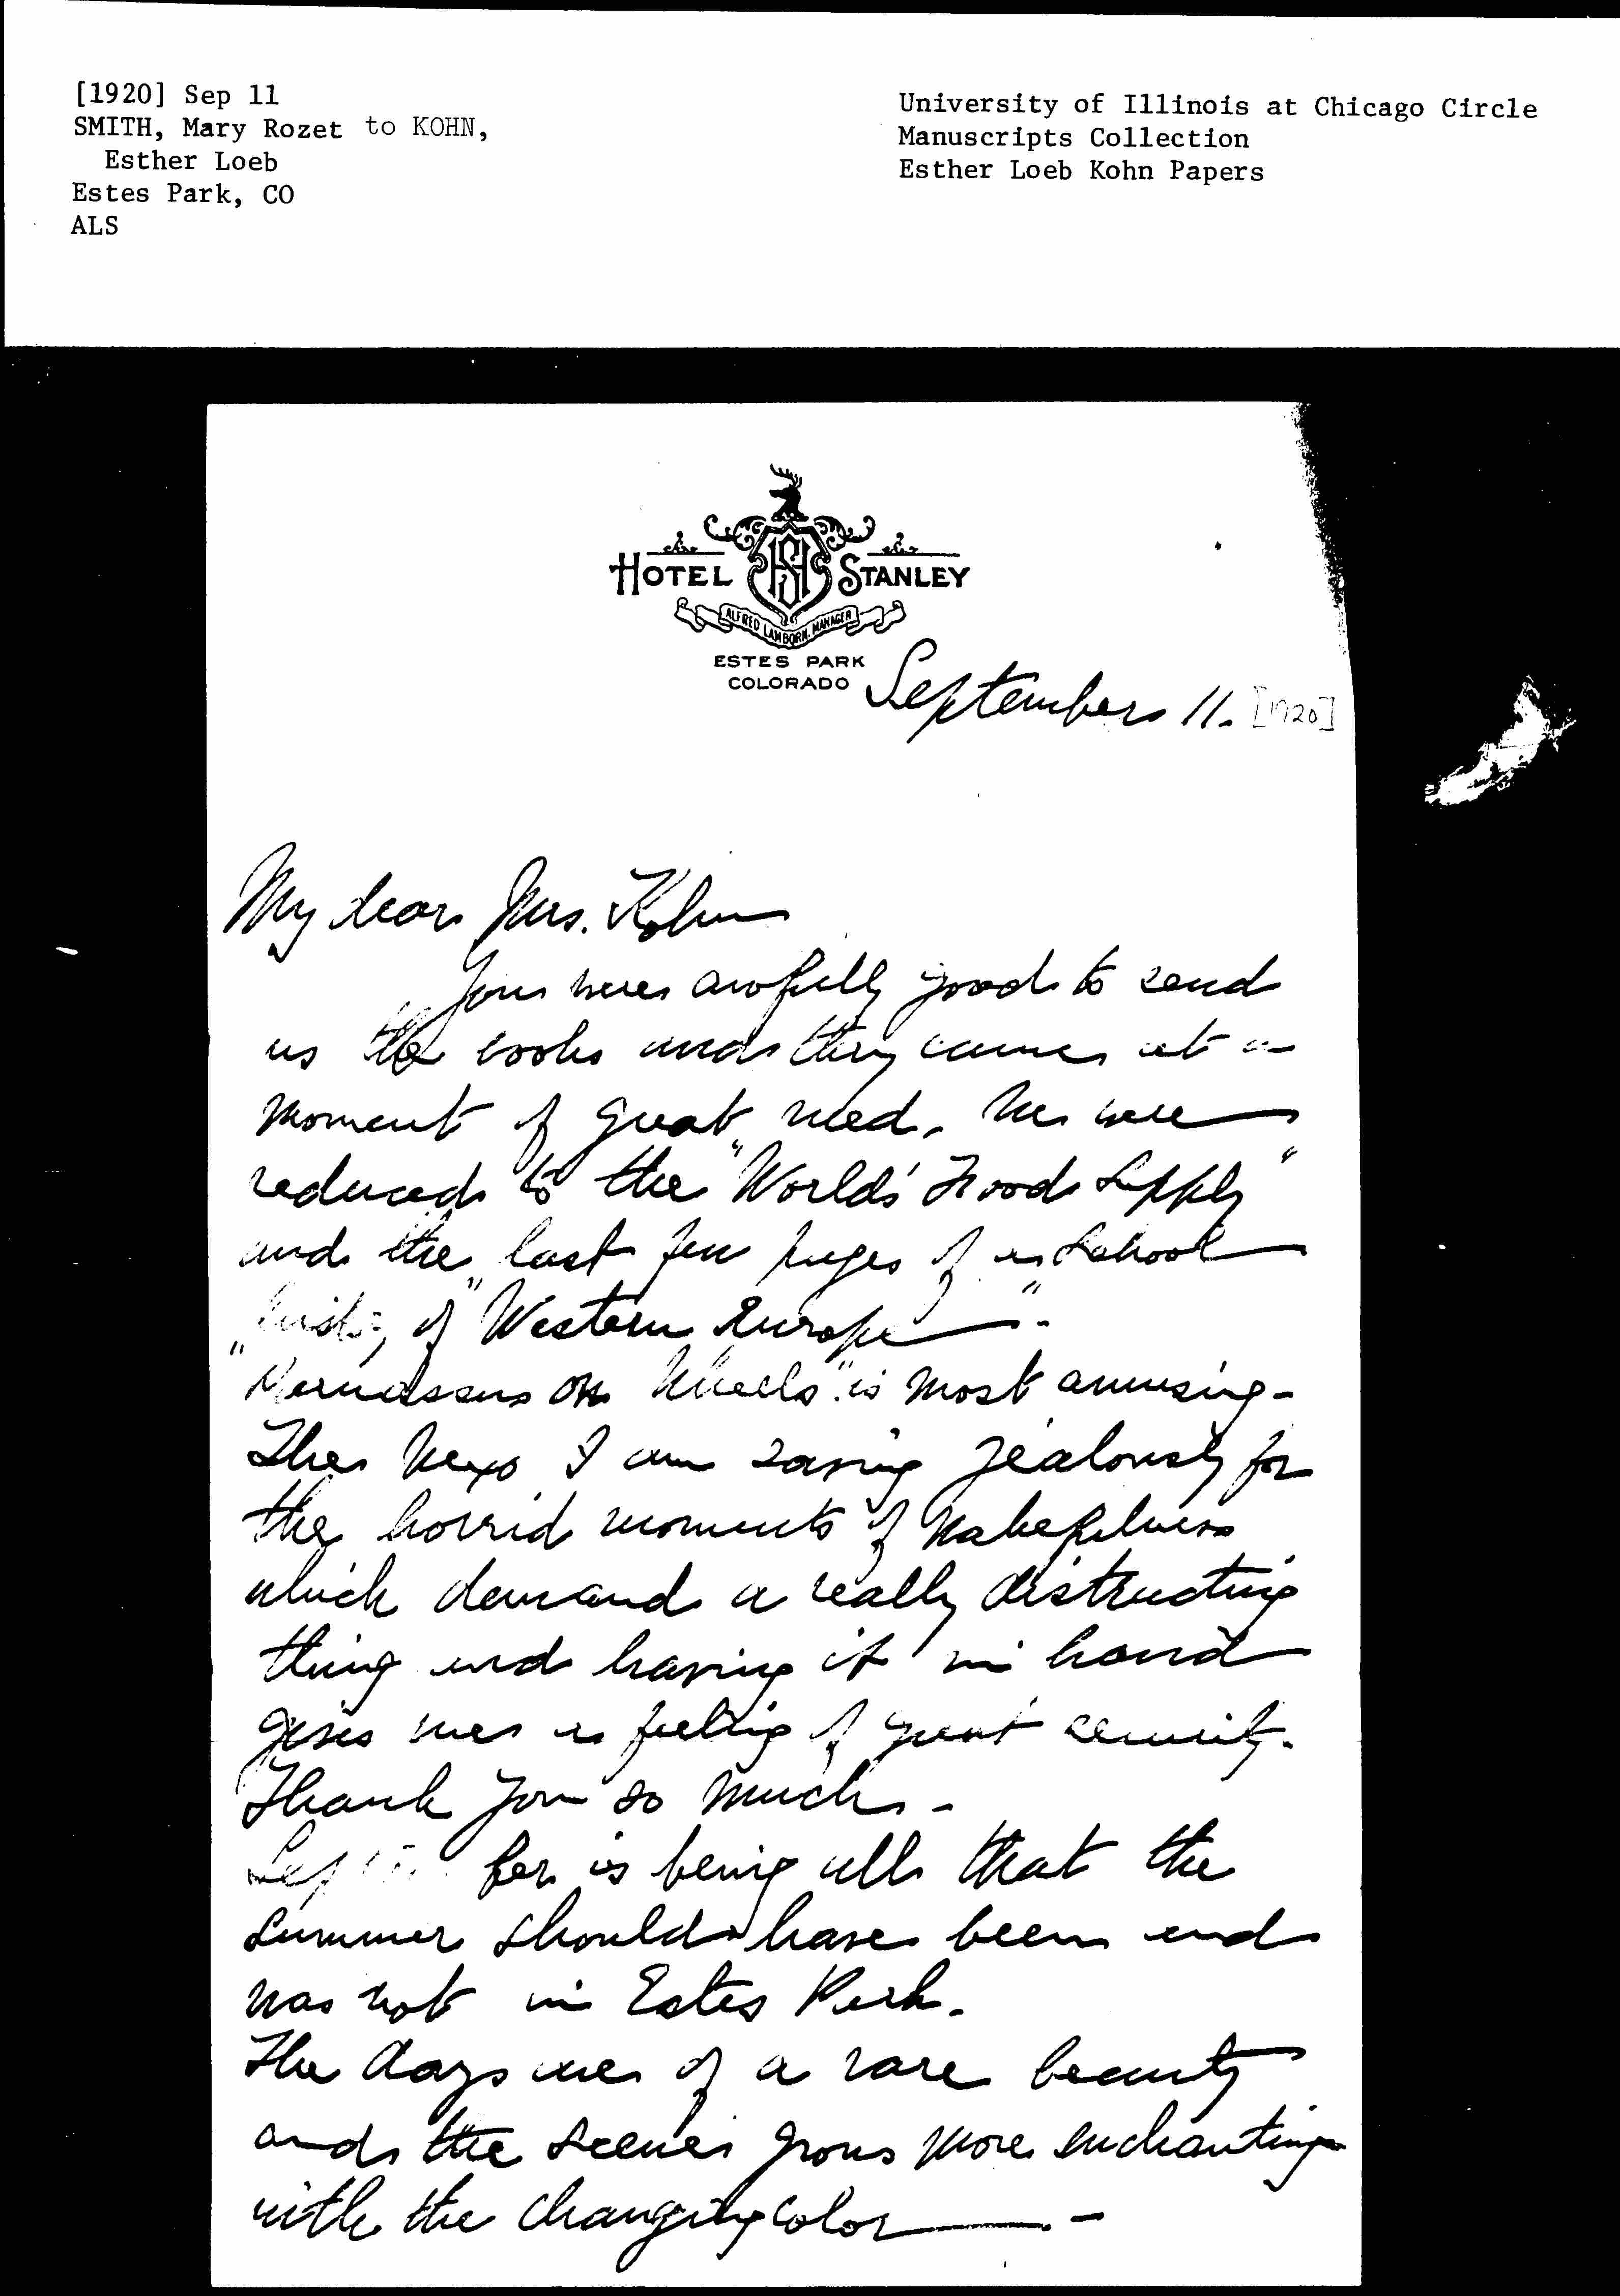 [1920] Sep 11
SMITH, Mary Rozet to KOHN,
Esther Loeb
Estes Park, CO
ALS
University of Illinois at Chicago Circle
Manuscripts Collection
Esther Loeb Kohn Papers
HOTEL HS STANLEY
ALFRED LAMBORN, MANAGER
ESTES PARK
COLORADO
September 11. [1920]
My dear Mrs. Kohn
You were awfully good to send
us the books and they came at a
moment of great need. We were
reduced to the "World's Food Supply"
and the last few pages of a School
"history of "Western Europe".
"Parnassus on Wheels" is most amusing-
The I am saving jealously for
the horrid moments of wakefulness
which demand a really distracting
thing and having it in hand
gives me a feeling of great security.
Thank you so much.-
September is being all that the
summer should have been and
was not in Estes Park.
The days are of a rare beauty
and the scene grows more enchanting
with the changing color -